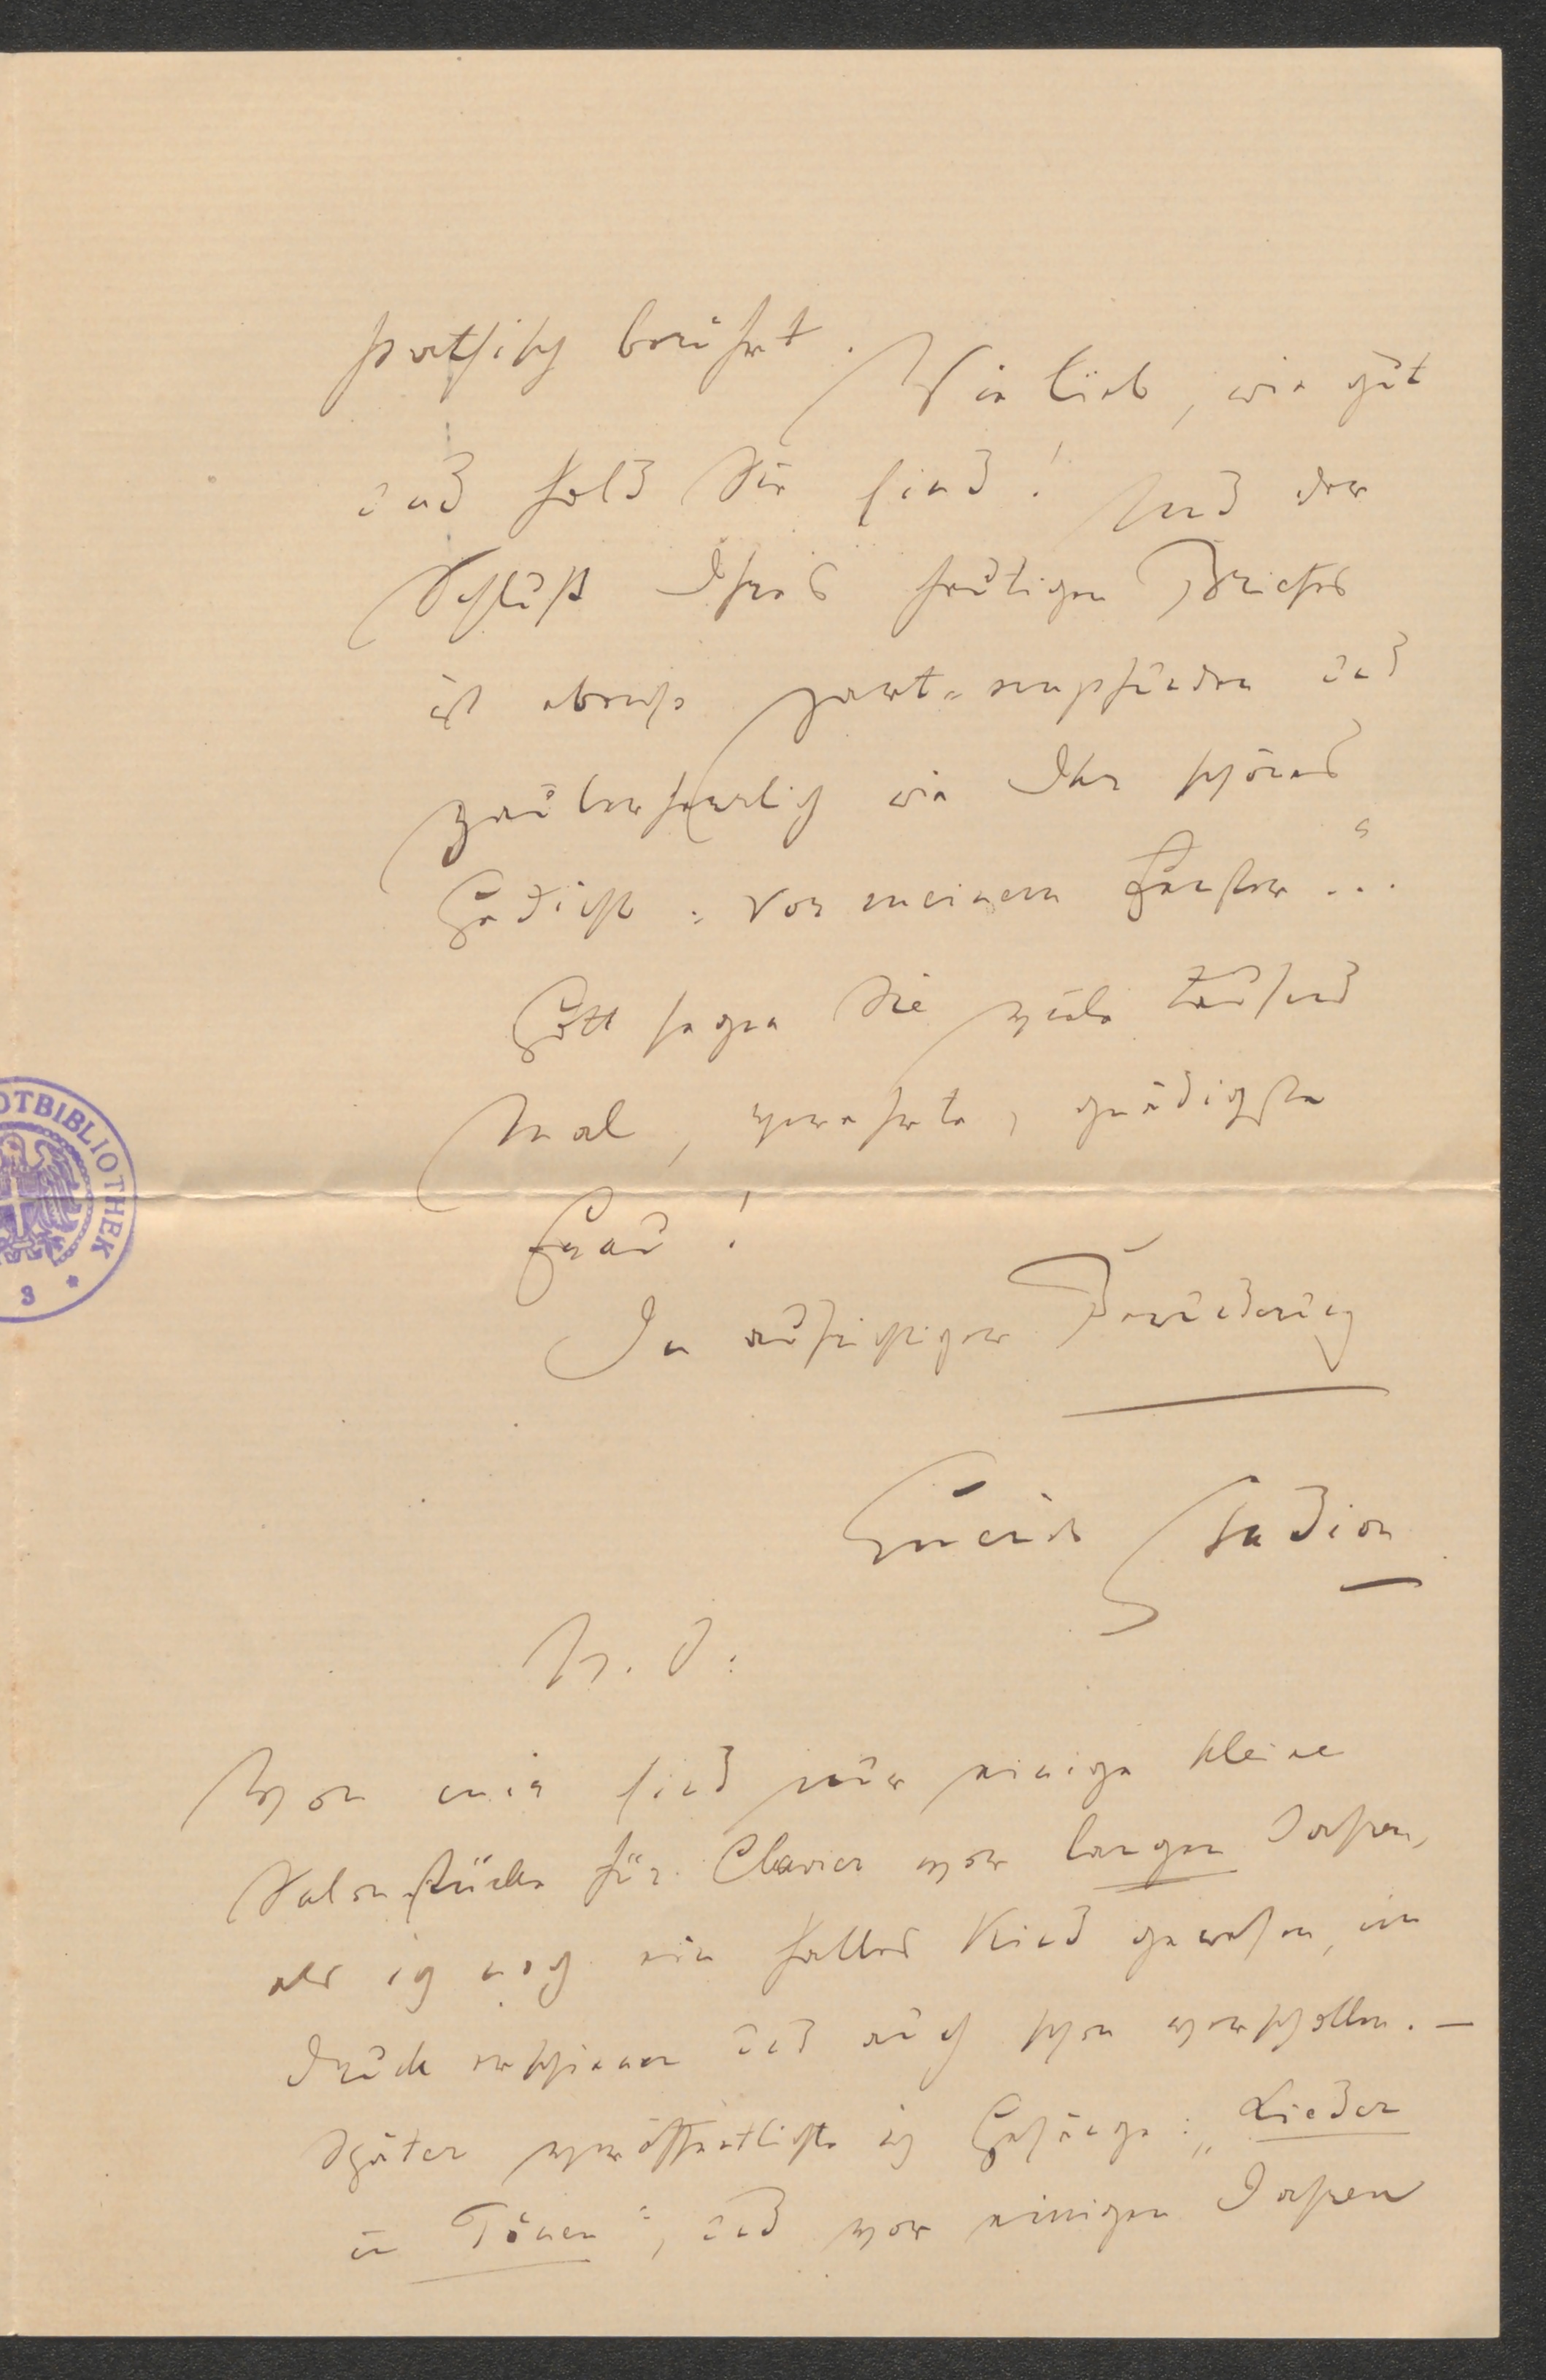 pathisch berührt. Wie lieb, wie gut
und hold Sie sind! Und der
Schluß Ihres heutigen Briefes
ist ebenso zart-empfunden und
zauberherrlich wie Ihr schönes
Gedicht: Vor meinem Fenster"...
Gott segne Sie viele tausend
Mal, verehrte, gnädigste
Frau!
In aufrichtiger Bewunderung
Emerich Stadion
N. S.
Von mir sind nur einige kleine
Salonstücke für Clavier vor langen Jahren,
als ich noch ein halbes Kind gewesen, im
Druck erschienen und auch schon verschollen. —
Später veröffentlichte ich Gesänge: „Lieder
in Tönen", und vor einigen Jahren
OTBIBLIOTHEK
3 *